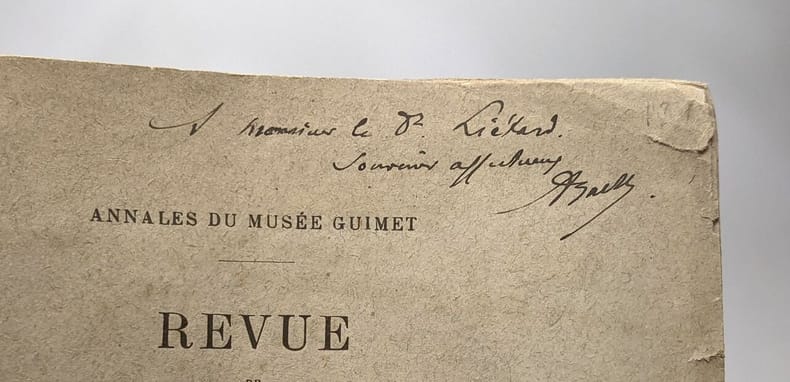 A monsieur le Dr. Liétard.
Souvenir affectueux
ANNALES DU MUSÉE GUIMET
REVUE
DE